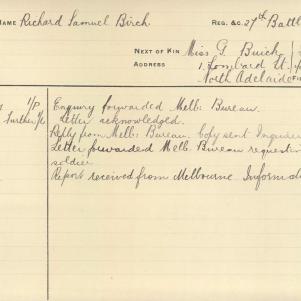 NAME Richard Samuel Birch REG. &C. 27th Battl
NEXT OF KIN Miss G Buick
ADDRESS 1 Lombard St.
North Adelaide
1/P Enquiry forwarded Melb: Bureau.
Further 1/P Letter acknowledged.
Reply from Melb: Bureau. Copy sent Inquirer
Letter forwarded Melb Bureau requesting
soldier
Report received from Melbourne Informa